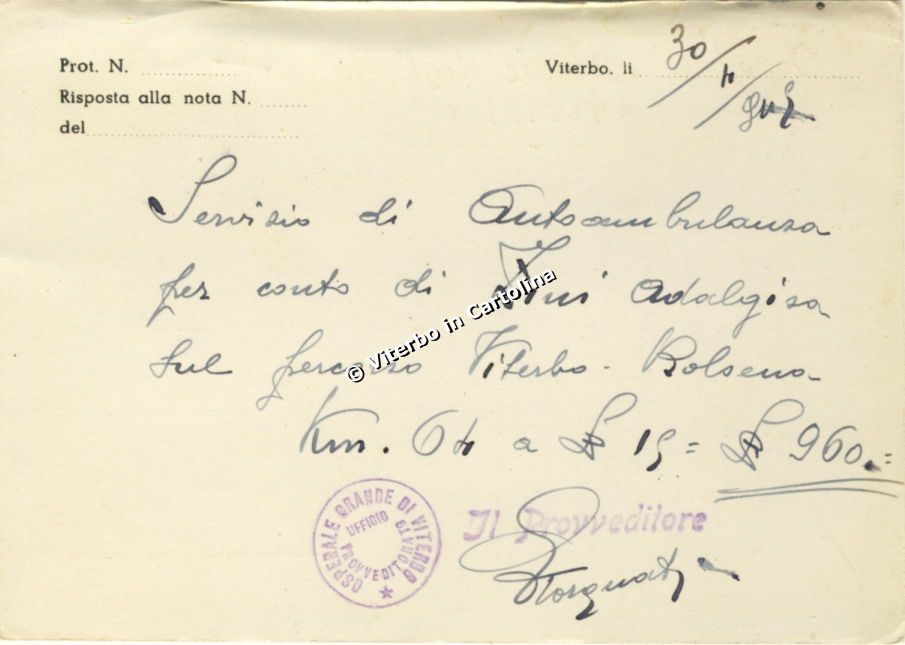 Prot. N. ............
Viterbo. li ........ 30/4/945
Risposta alla nota N. ........
del ........
Servizio di Autoambulanza
per conto di Adalgisa
sul percorso Viterbo - Bolsena
Km. 64 a £ 15 = £ 960.=
© Viterbo in Cartolina
OSPEDALE GRANDE DI VITERBO
UFFICIO
PROVVEDITORATO
Il Provveditore